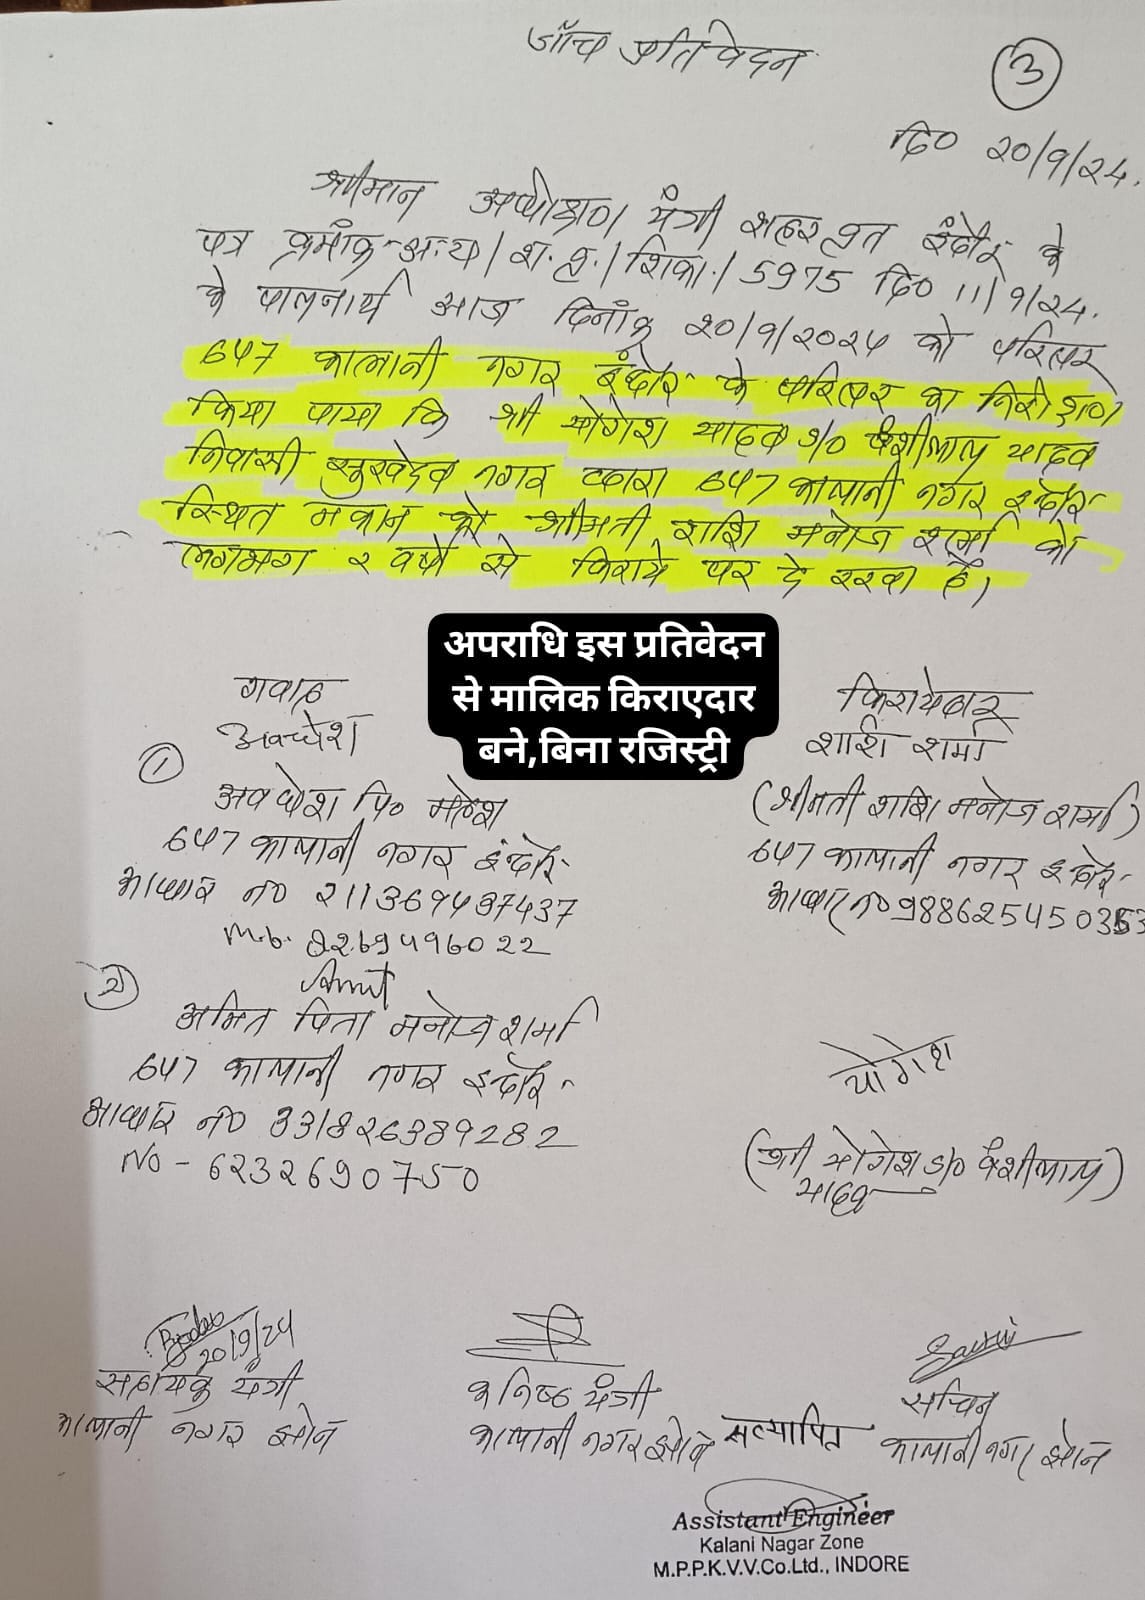 जाँच प्रतिवेदन
3
दि० 20/9/24.
श्रीमान अधीक्षण यंत्री शहर वृत इंदौर के
पत्र क्रमांक-अ.य/श.वृ./शिका./5975 दि० 11/9/24.
के पालनार्थ आज दिनांक 20/9/2024 को परिसर
647 कालानी नगर इंदौर के परिसर का निरीक्षण
किया पाया कि श्री योगेश यादव s/o बंशीलाल यादव
निवासी सुखदेव नगर द्वारा 647 कालानी नगर इंदौर
स्थित मकान को श्रीमती शशि मनोज शर्मा को
लगभग २ वर्षो से किराये पर दे रखा है।
अपराधि इस प्रतिवेदन
से मालिक किराएदार
बने,बिना रजिस्ट्री
गवाह
अवधेश
1
अवधेश पि० महेश
647 कालानी नगर इंदौर
आधार no 211369497437
M.b. 8269496022
2
Amit
अमित पिता मनोज शर्मा
647 कालानी नगर इंदौर
आधार no 331826389282
No - 6232690750
किरायेदार
शशि शर्मा
(श्रीमती शशि मनोज शर्मा)
647 कालानी नगर इंदौर
आधार no
योगेश
(श्री योगेश s/o बंशीलाल)
यादव
20/9/24
सहायक यंत्री
कालानी नगर झोन
कनिष्ठ यंत्री
कालानी नगर झोन
सत्यापित
सचिन
कालानी नगर झोन
Assistant Engineer
Kalani Nagar Zone
M.P.P.K.V.V.Co.Ltd., INDORE